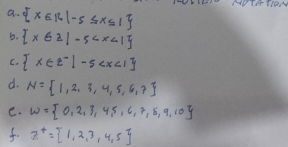 NOTATION
a. { x ∈ R | -5 ≤ x ≤ 1 }
b. { x ∈ Z | -5 < x < 1 }
c. { x ∈ Z⁻ | -5 < x < 1 }
d. N = { 1, 2, 3, 4, 5, 6, 7 }
e. W = { 0, 2, 3, 4, 5, 6, 7, 8, 9, 10 }
f. Z⁺ = { 1, 2, 3, 4, 5 }